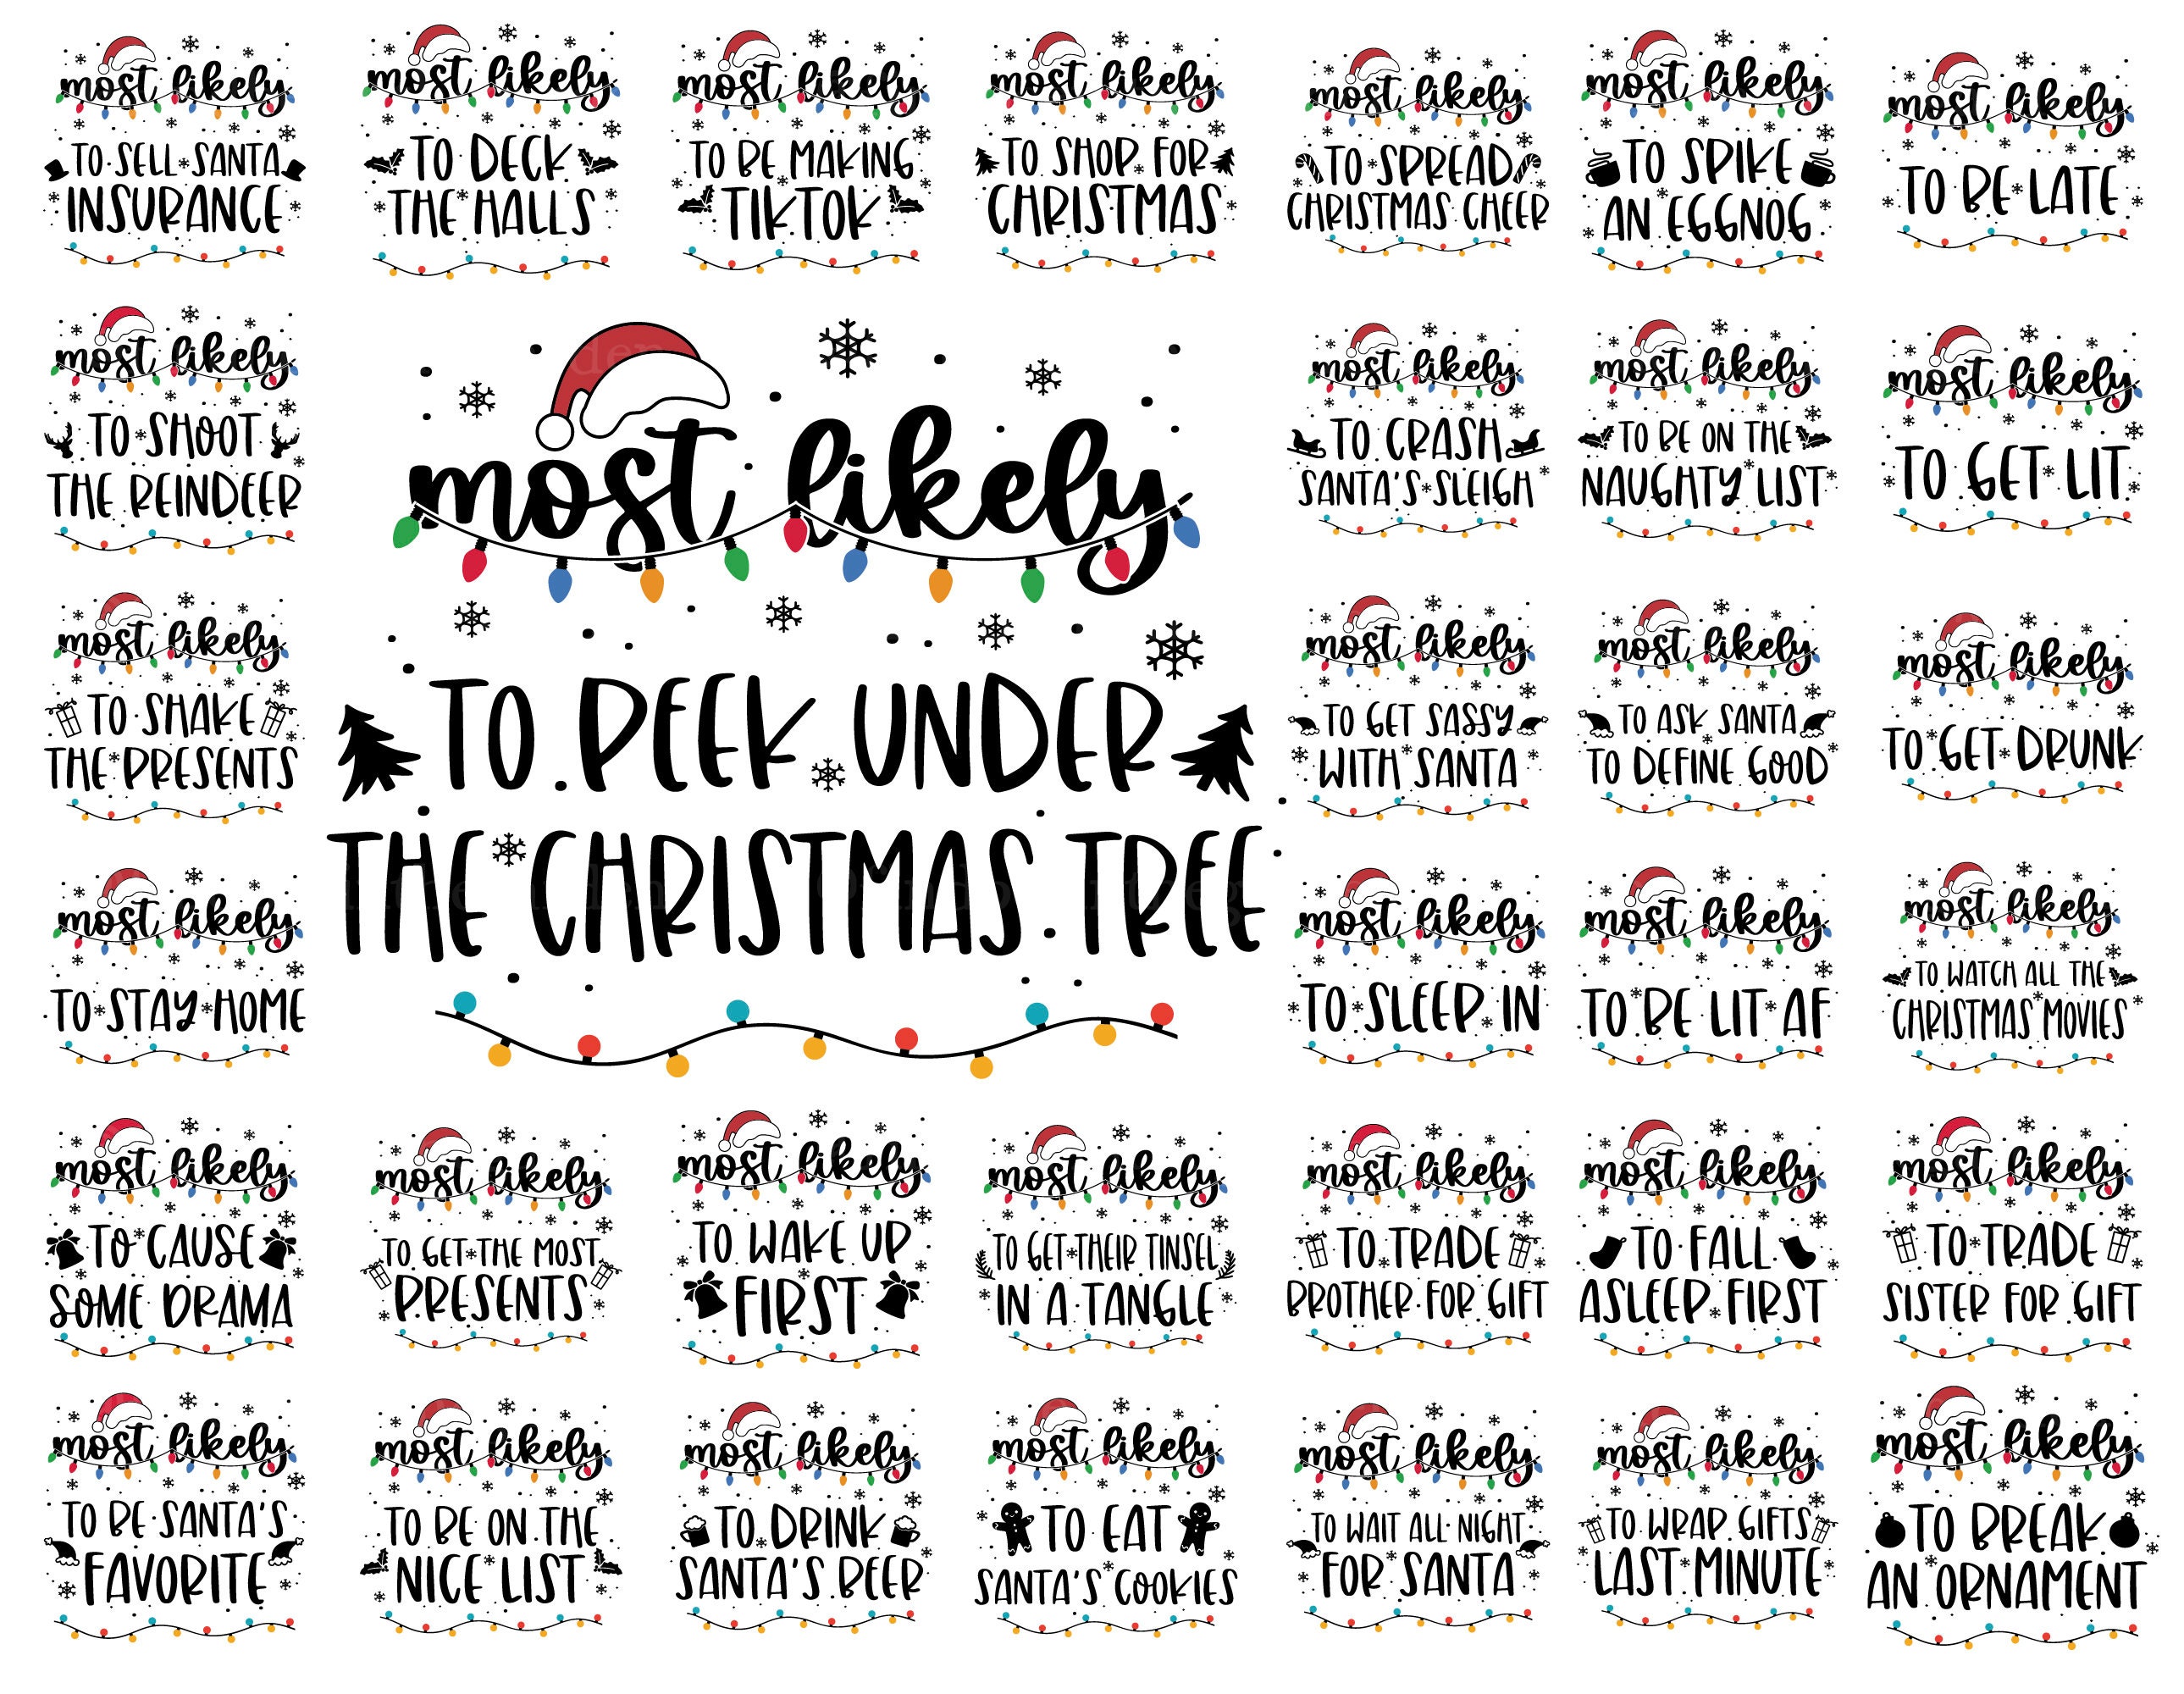 most likely
TO SELL SANTA
INSURANCE
most likely
TO DECK
THE HALLS
most likely
TO BE MAKING
TIKTOK
most likely
TO SHOP FOR
CHRISTMAS
most likely
TO SPREAD
CHRISTMAS CHEER
most likely
TO SPIKE
AN EGGNOG
most likely
TO BE LATE
most likely
TO SHOOT
THE REINDEER
most likely
TO PEEK UNDER
THE CHRISTMAS TREE
most likely
TO CRASH
SANTA'S SLEIGH
most likely
TO BE ON THE
NAUGHTY LIST
most likely
TO GET LIT
most likely
TO SHAKE
THE PRESENTS
most likely
TO GET SASSY
WITH SANTA
most likely
TO ASK SANTA
TO DEFINE GOOD
most likely
TO GET DRUNK
most likely
TO STAY HOME
most likely
TO SLEEP IN
most likely
TO BE LIT AF
most likely
TO WATCH ALL THE
CHRISTMAS MOVIES
most likely
TO CAUSE
SOME DRAMA
most likely
TO GET THE MOST
PRESENTS
most likely
TO WAKE UP
FIRST
most likely
TO GET THEIR TINSEL
IN A TANGLE
most likely
TO TRADE
BROTHER FOR GIFT
most likely
TO FALL
ASLEEP FIRST
most likely
TO TRADE
SISTER FOR GIFT
most likely
TO BE SANTA'S
FAVORITE
most likely
TO BE ON THE
NICE LIST
most likely
TO DRINK
SANTA'S BEER
most likely
TO EAT
SANTA'S COOKIES
most likely
TO WAIT ALL NIGHT
FOR SANTA
most likely
TO WRAP GIFTS
LAST MINUTE
most likely
TO BREAK
AN ORNAMENT